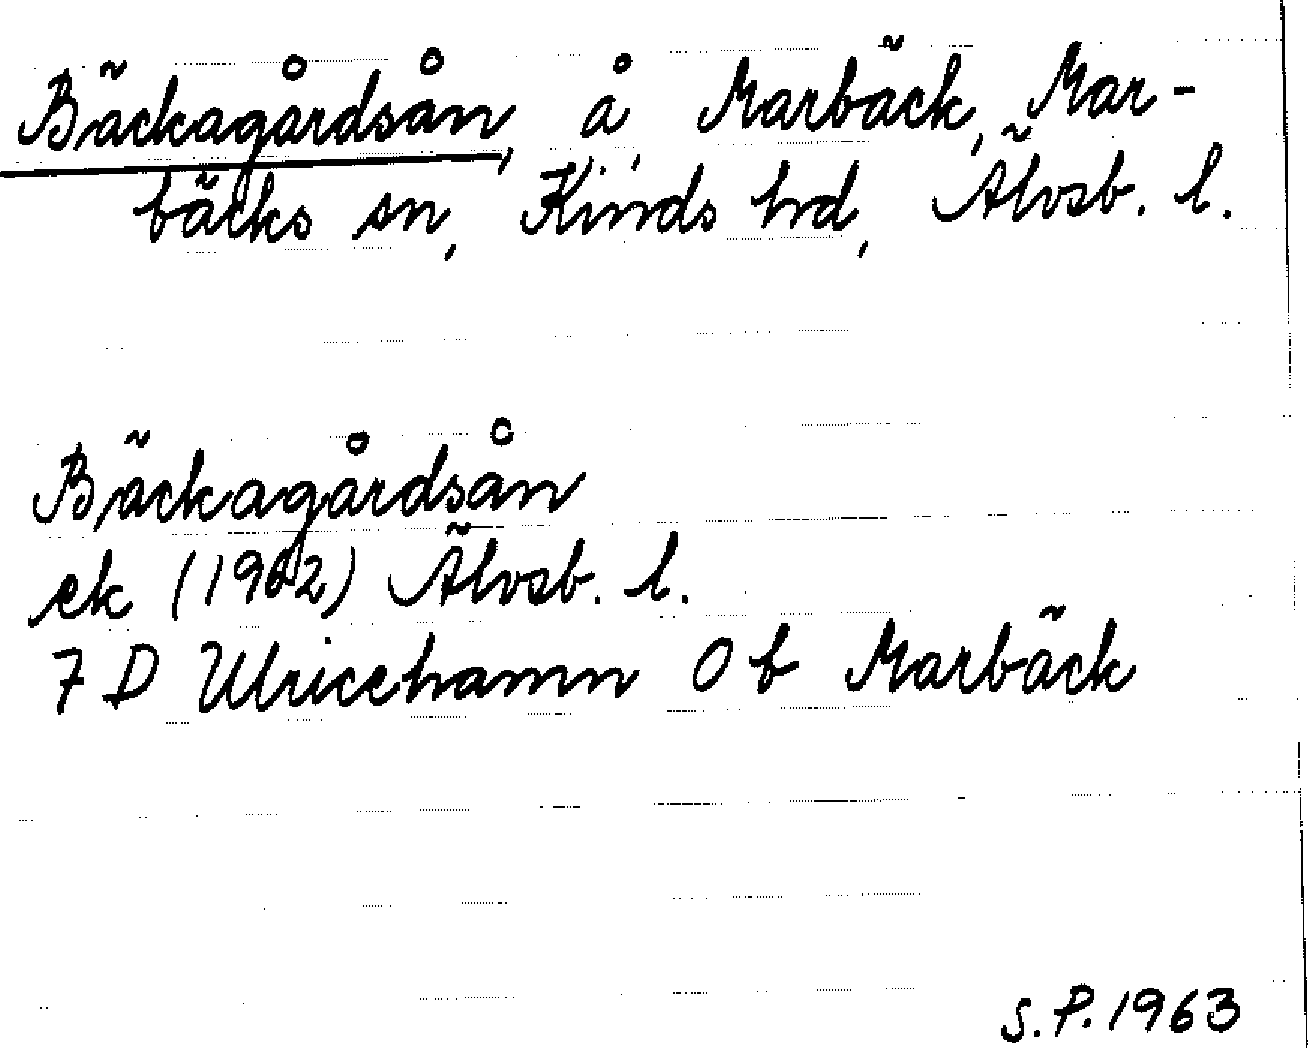 Bäckagårdsån, å Marbäck, Mar-
bäcks sn, Kinds hrd, Älvsb. l.
Bäckagårdsån
ek (1962) Älvsb. l.
7 D Ulricehamn 0 b Marbäck
S.P. 1963